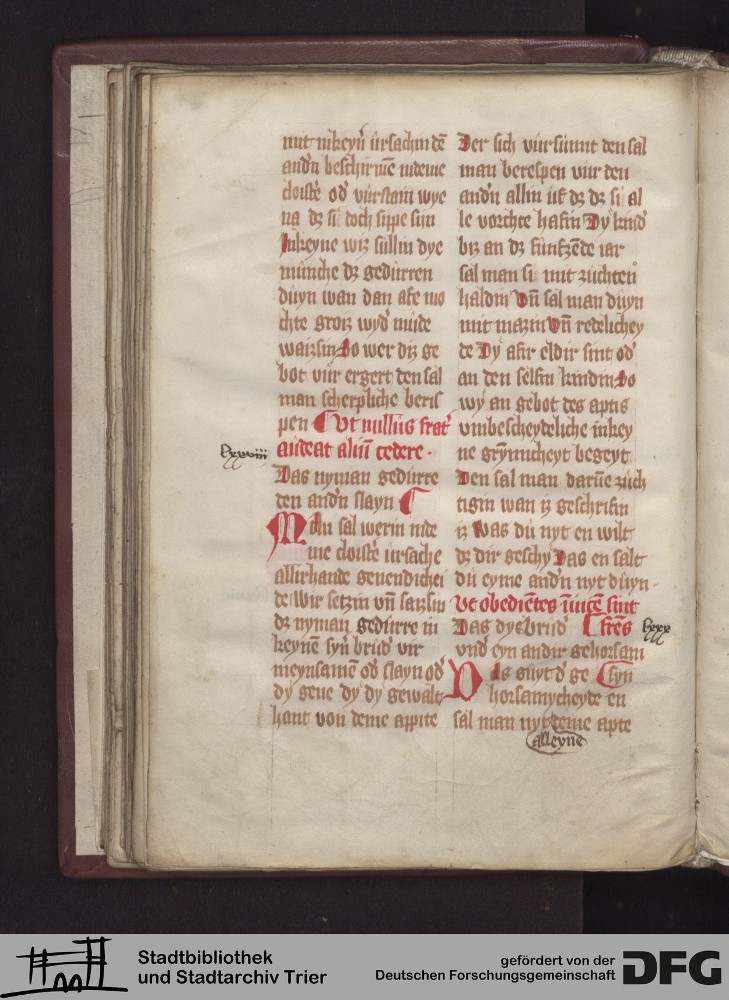 mit nikeyn̄ ursachin dē
and'n beschirmē indeme
cloist'e od' vurstain wye
na dz si doch sippe sijn
Inkeyne wiz sullin dye
müniche dz gedurren
duyn wan dan afe mo
chte groiz wyd' müde
waissin So wer diz ge
bot vur ergert den sal
man scherpliche beris
pen Vt nullus frat'
audeat aliū cedere ·
lxxviiij
Das nyman gedurre
den and'n slayn
Man sal werin inde
me cloist'e ursache
allirhande genendichei
de wir setzin vn̄ saissin
dz nyman gedurre in
keynē syn' brud' vir
meynsamē od' slayn od'
dy gene dy dy gewalt
hant von deme appte
Der sich vursumt den sal
man berespen vur den
and'n allin uf dz dz si al
le vorchte hafin Dy kind'
biz an dz funfzēde iar
sal man si mit züchten
haldin Vn̄ sal man duyn
mit mazin Vn̄ redelichey
de Dy afir eldir sint od'
an den selfin kindin So
wy an gebot des aptis
vmbescheydeliche inkey
ne grymicheyt begeyt
Den sal man darūe züch
tigin wan iz geschrifin
iz Was du nyt en wilt
dz dir geschy Das en salt
du eyme and'n nyt duyn ·
Vt obediētes īuicē sint
Das dye brud' fr̄es
lxxx
vnd eyn andir gehorsam
Das guyt d' ge syn
horsamycheyde en
sal man nyt deme apte
alleyne
Stadtbibliothek
und Stadtarchiv Trier
gefördert von der
Deutschen Forschungsgemeinschaft
DFG